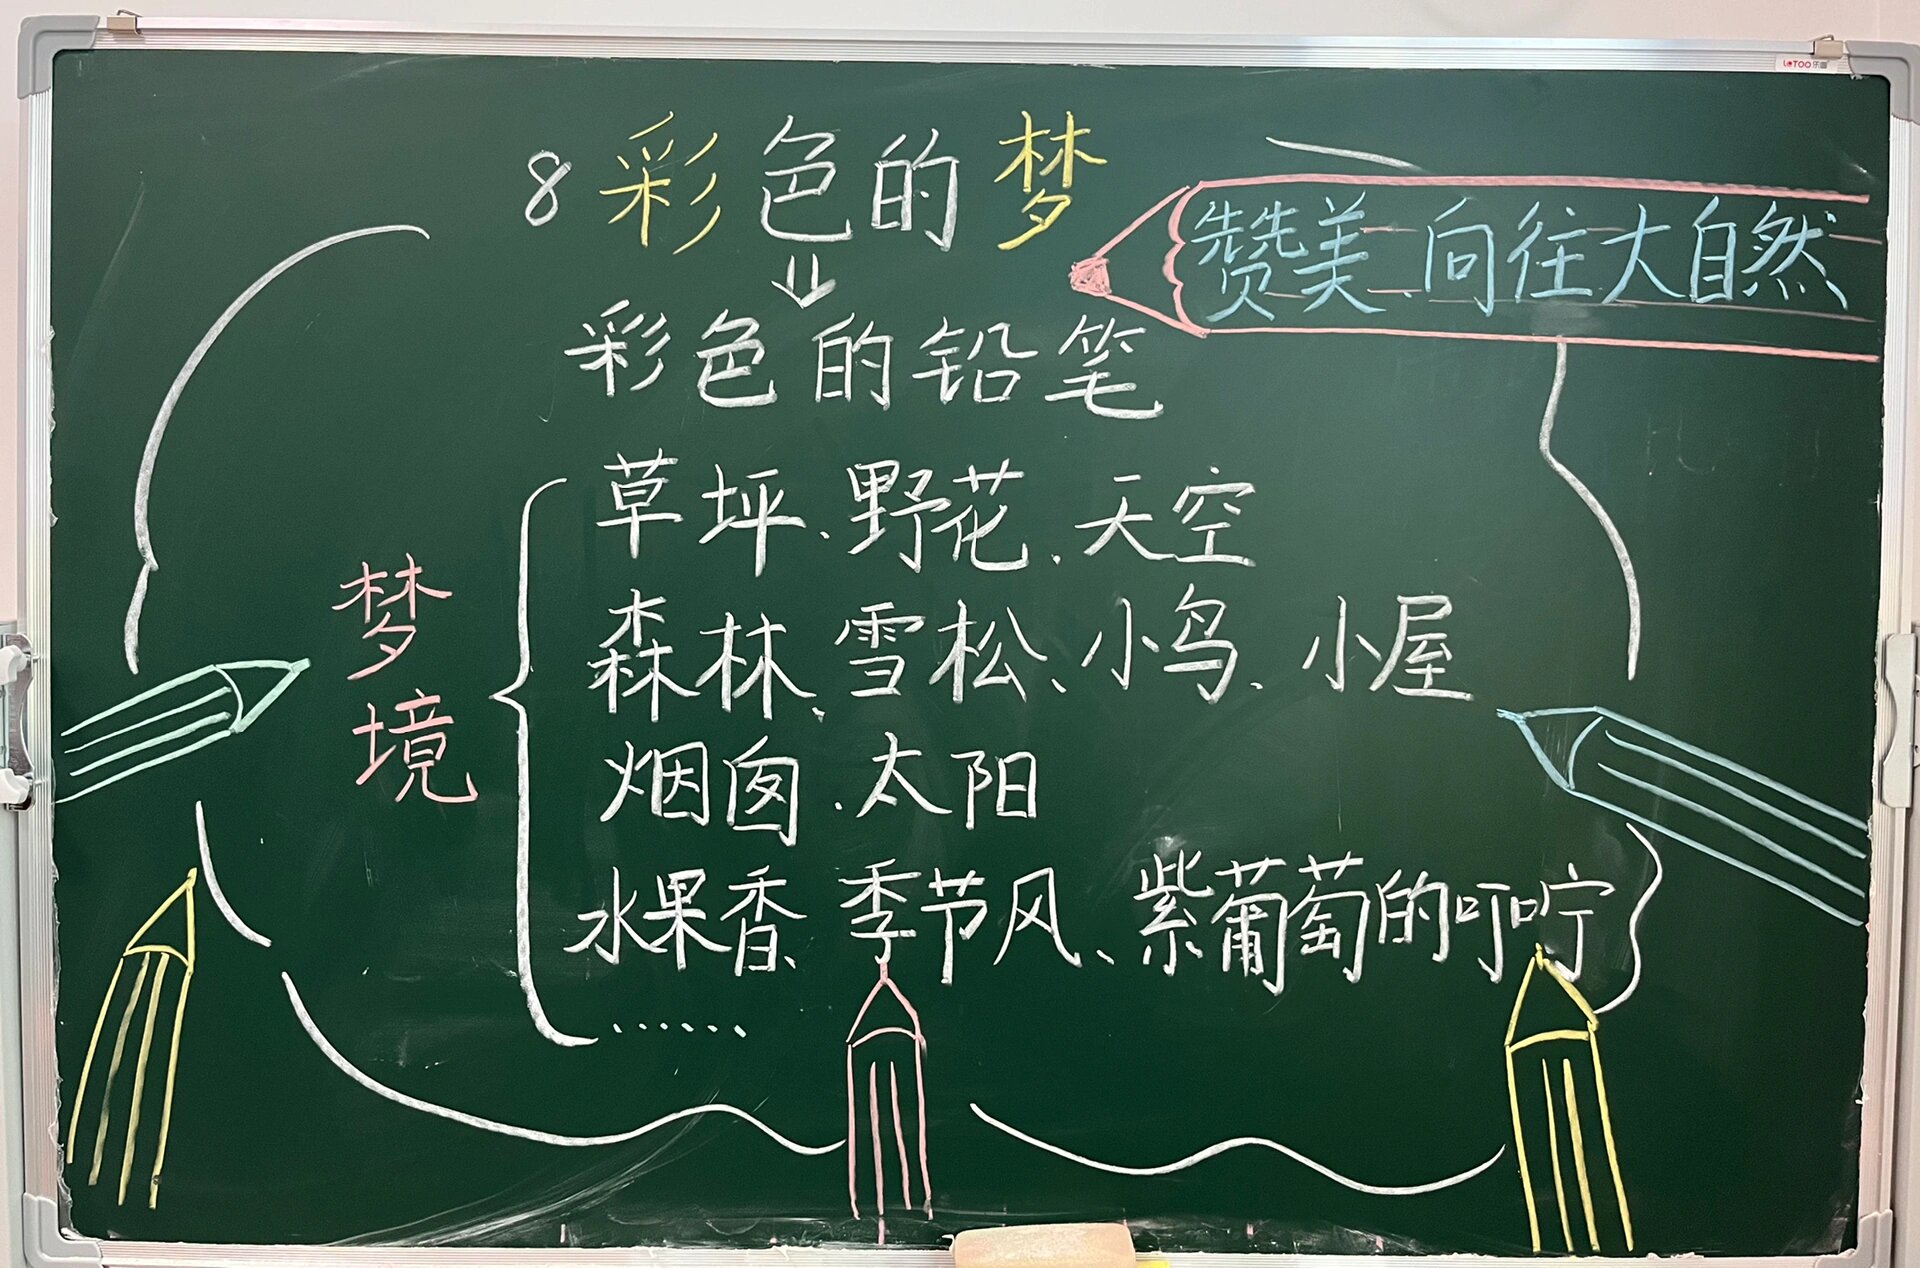 LOTOO乐图
8 彩色的梦
赞美、向往大自然
彩色的铅笔
梦境
草坪、野花、天空
森林、雪松、小鸟、小屋
烟囱、太阳
水果香、季节风、紫葡萄的叮咛
……